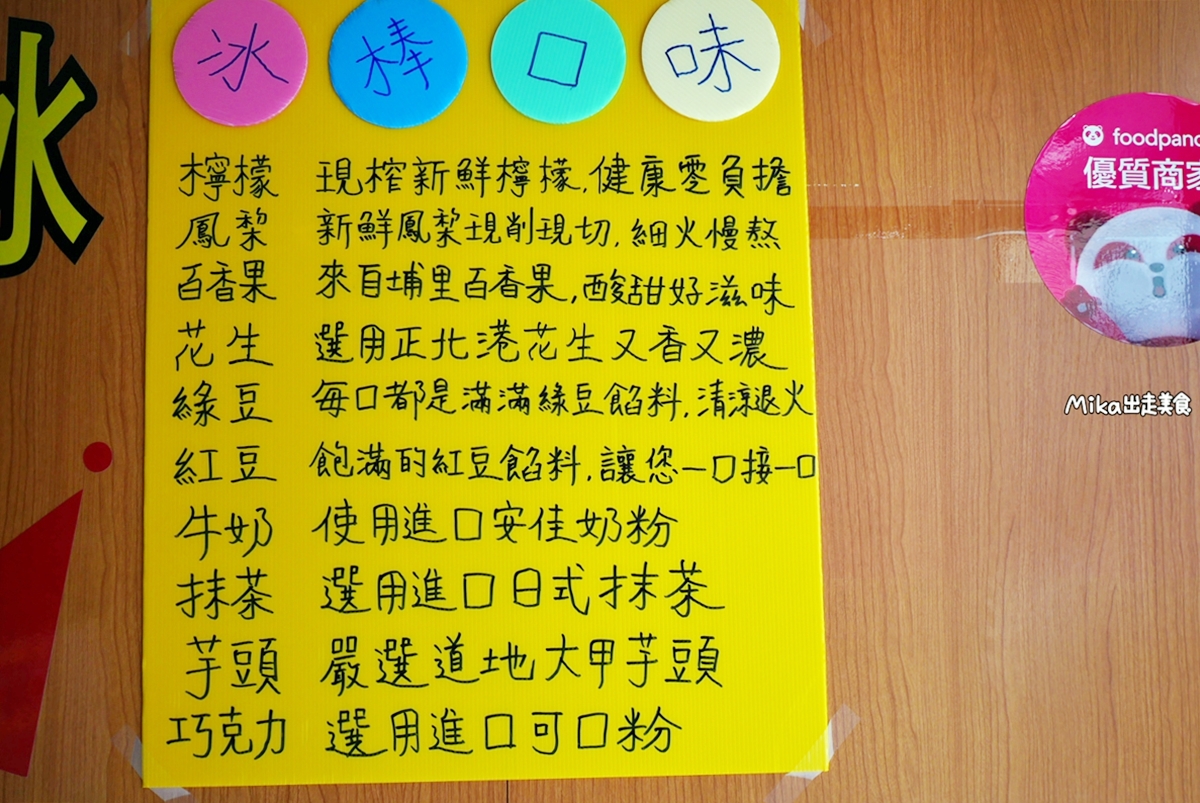 冰
冰棒口味
檸檬 現榨新鮮檸檬,健康零負擔
鳳梨 新鮮鳳梨現削現切,細火慢熬
百香果 來自埔里百香果,酸甜好滋味
花生 選用正北港花生又香又濃
綠豆 每口都是滿滿綠豆餡料,清涼退火
紅豆 飽滿的紅豆餡料,讓您一口接一口
牛奶 使用進口安佳奶粉
抹茶 選用進口日式抹茶
芋頭 嚴選道地大甲芋頭
巧克力 選用進口可口粉
foodpand
優質商家
Mika出走美食